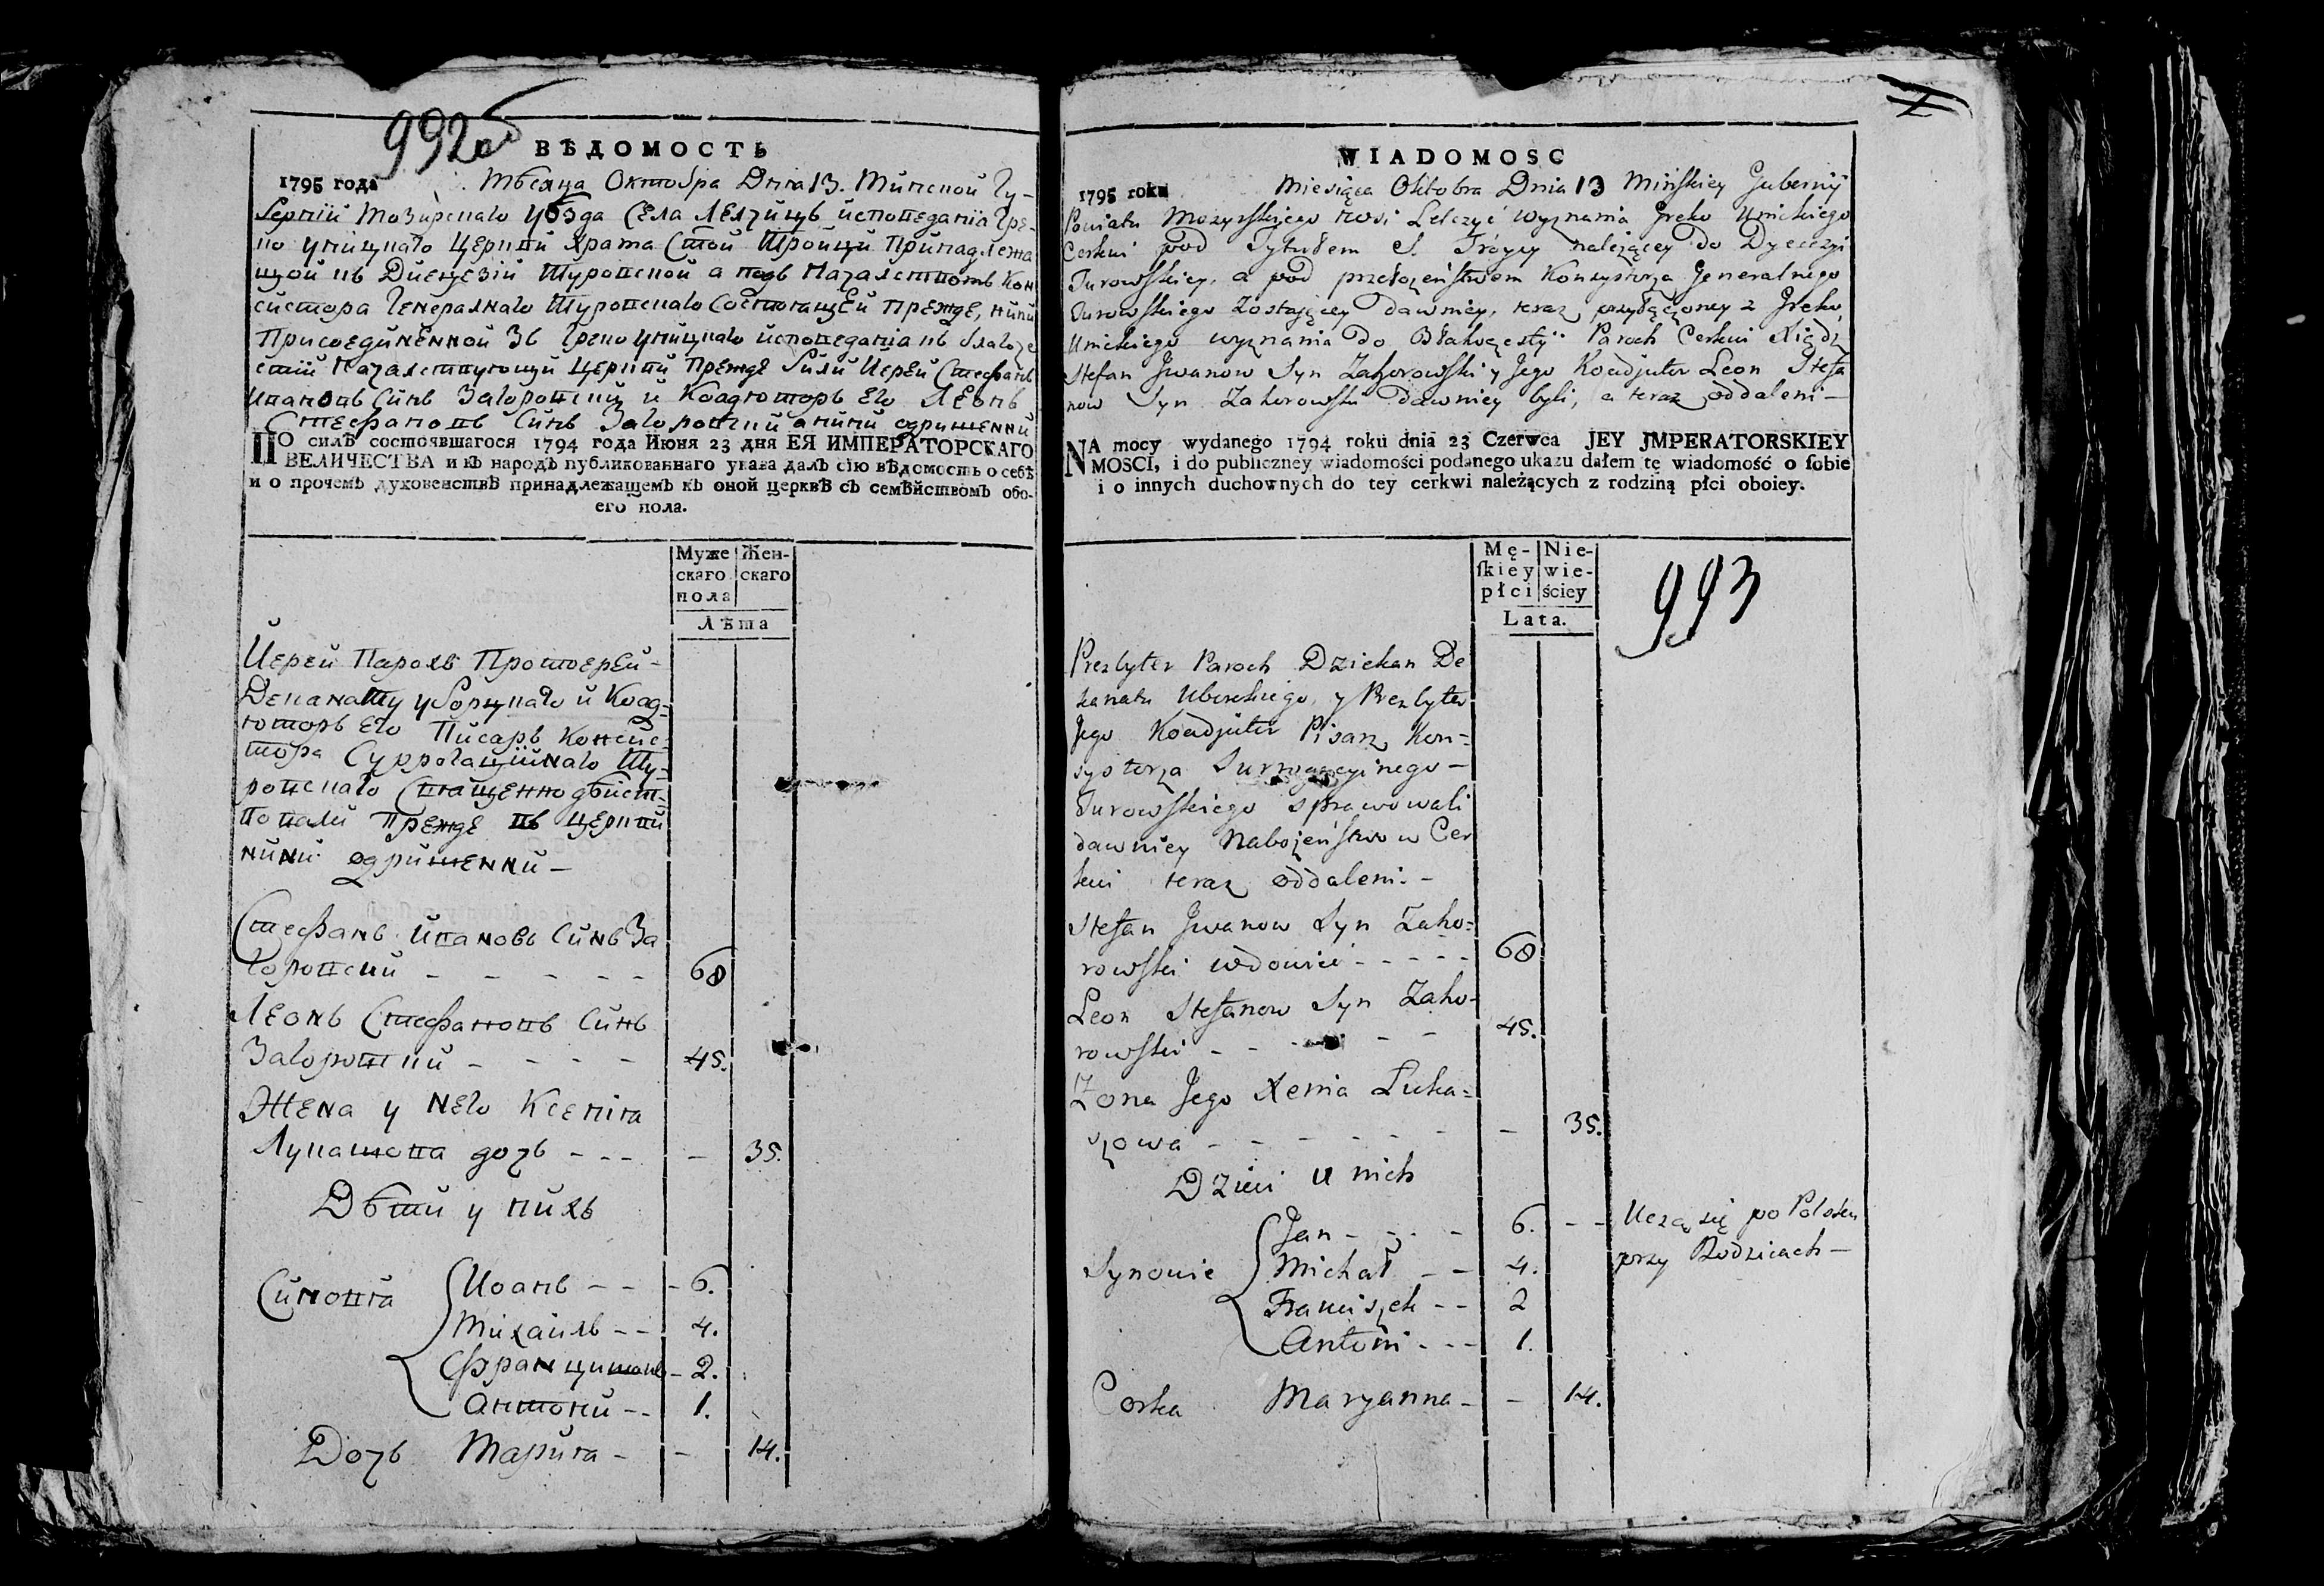 992об
ВѢДОМОСТЬ
1795 года Мѣсяца Октобра Дня 13. Минской Гу-
берніи Мозирскаго уѣзда Села Лелчицъ исповеданія Гре-
ко уніцкаго Церкви Храма Стой Тройци Принадлежа
щой къ Диецезіи Туровской а подъ Началством Кон
систора Генералнаго Туровскаго Состоящей прежде, нині
Присоединенной Зъ Греко уницкаго исповеданія къ благоче
стии Началствующи Церкви Прежде били Иерей Стефанъ
Ивановъ Синъ Загоровский и Коадюторъ Его Леонъ
Стефановъ Синъ Загоровский а нини одришенни
ПО силѣ состоявшагося 1794 года Июня 23 дня ЕЯ ИМПЕРАТОРСКАГО
ВЕЛИЧЕСТВА и въ народъ публикованнаго указа далъ сію вѣдомость о себѣ
и о прочемъ духовенствѣ принадлежащемъ къ оной церквѣ съ семѣйствомъ обо-
его пола.
Муже скаго пола Жен- скаго
Лѣта
Иерей Парохъ Протоерей
Деканату уборцкаго и Коад-
юторъ Его Писаръ Консис-
тора Суррогацийнаго Ту-
ровскаго Священнодѣйст-
вовали Прежде въ Церкви
нини одришенни –
Стефанъ Ивановъ Синъ За
горовский - - - - - 68
Леонъ Стефановъ Синъ
Загоровский - - - - 45.
Жена у Него Ксенія
Лукашова дочъ - - - - 35.
Дѣти у нихъ
Синовя Иоанъ - - - 6.
Михаилъ - - 4.
Францишекъ - 2.
Антони - - 1.
Дочъ Марияна - - 14.
WIADOMOSC
1795 roku Miesiąca Oktobra Dnia 13 Mińskiey Gubernij
Powiatu Mozyrskiego wsi Lelczyć wyznania Greko Unickiego
Cerkwi pod Tytułem S. Tróycy należącey do Dyecezyi
Turowskiey, a pod przełożeństwem Konsystorza Generalnego
Turowskiego Zostaiącey dawniey, teraz przyłączoney z Greko
Unickiego wyznania do Błahoczestyi Paroch Cerkwi Xiądz
Stefan Jwanow Syn Zahorowski y Jego Koadjutor Leon Stefa
now Syn Zahorowski dawniey byli, a teraz oddaleni –
NA mocy wydanego 1794 roku dnia 23 Czerwca JEY JMPERATORSKIEY
MOSCI, i do publiczney wiadomości podanego ukazu dałem tę wiadomość o sobie
i o innych duchownych do tey cerkwi należących z rodziną płci oboiey.
Mę- skiey płci Nie- wie- ściey
Lata.
993
Prezbyter Paroch Dziekan De
kanatu Uborckiego y Prezbyter
Jego Koadjutor Pisarz Kon-
systorza Surrogacyinego –
Turowskiego sprawowali
dawniey Nabożeństwo w Cer
kwi teraz oddaleni. –
Stefan Jwanow Syn Zaho-
rowski wdowiec - - - - - 68
Leon Stefanow Syn Zaho-
rowski - - - - - 45.
Zona Jego Xenia Luka-
szowa - - - - - - - 35.
Dzieci u nich
Synowie Jan - - - - 6. - - Uczą się po Polsku
Michał - - 4. przy Rodzicach –
Franciszek - - 2
Antoni - - - 1.
Corka Maryanna - - 14.